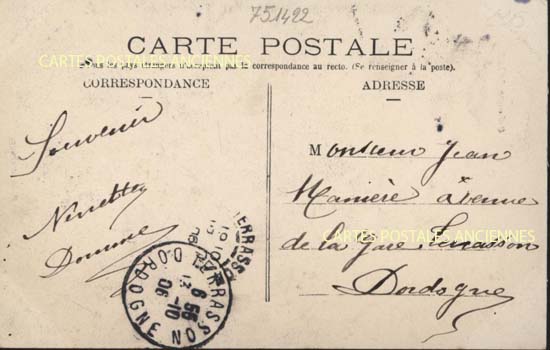 751422
CARTE POSTALE
Tous les pays étrangers n'acceptent pas la correspondance au recto. (Se renseigner à la poste).
CORRESPONDANCE
ADRESSE
CARTES POSTALES ANCIENNES
Souvenir
Ninette
Monsieur Jean
Manière avenue
de la Gare Terrasson
Dordogne
CARTES POSTALES ANCIENNES
TERRASSON DORDOGNE
6 55
13-10
06
TERRASS